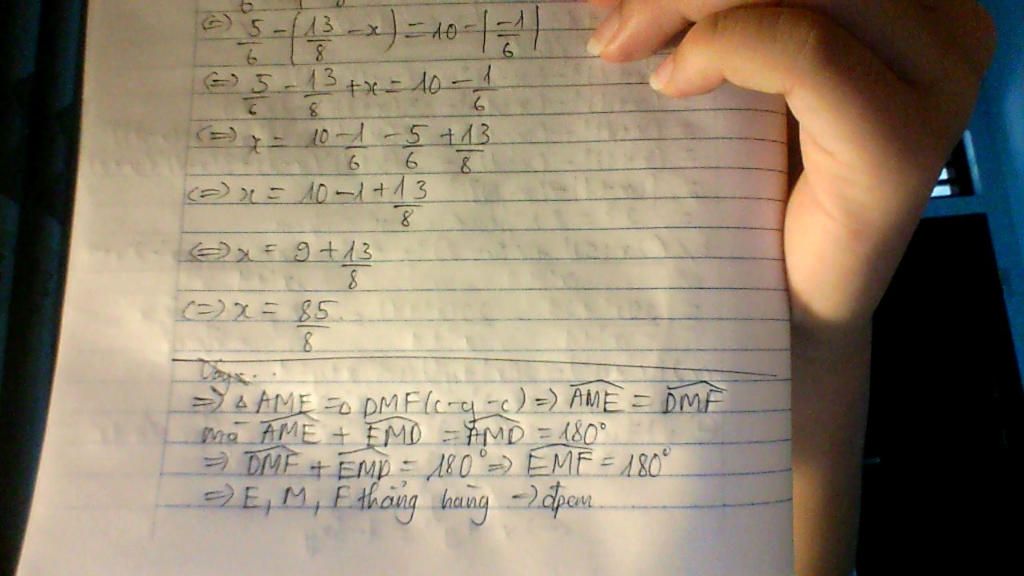 (=) 5/6 - (13/8 - x) = 10 - |-1/6|
(=) 5/6 - 13/8 + x = 10 - 1/6
(=) x = 10 - 1/6 - 5/6 + 13/8
(=) x = 10 - 1 + 13/8
(=) x = 9 + 13/8
(=) x = 85/8
=> △ AME = △ DMF (c-g-c) => \widehat{AME} = \widehat{DMF}
mà \widehat{AME} + \widehat{EMD} = \widehat{AMD} = 180°
=> \widehat{DMF} + \widehat{EMD} = 180° => \widehat{EMF} = 180°
=> E, M, F thẳng hàng -> đpcm